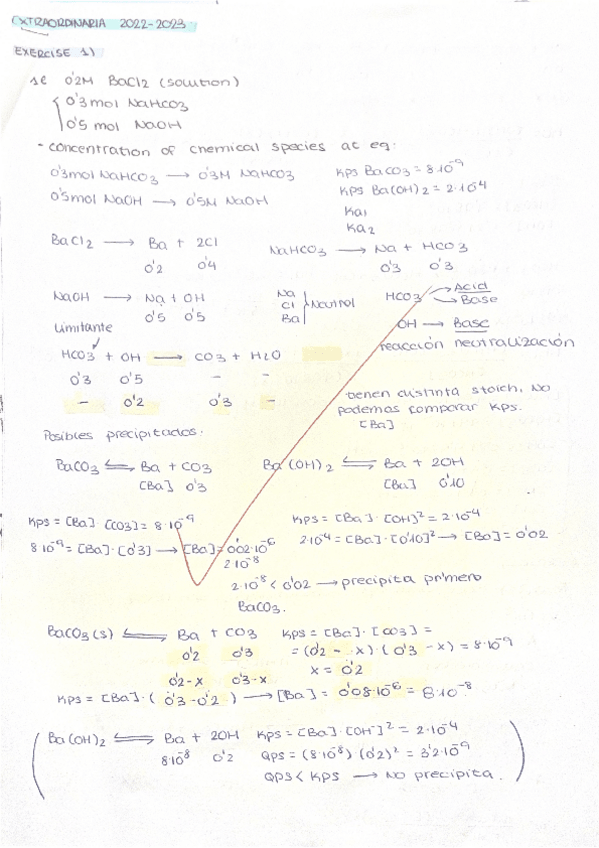 EXTRAORDINARIA 2022-2023
EXERCISE 1)
1l 0'2M BaCl2 (solution)
0'3 mol NaHCO3
0'5 mol NaOH
- concentration of chemical species at eq:
0'3mol NaHCO3 → 0'3M NaHCO3 KPS BaCO3 = 8·10⁻⁹
0'5mol NaOH → 0'5M NaOH KPS Ba(OH)2 = 2·10⁻⁴
Ka1
Ka2
BaCl2 → Ba + 2Cl NaHCO3 → Na + HCO3
0'2 0'4 0'3 0'3
NaOH → Na + OH Na Cl Ba | Neutral HCO3 Acid Base
0'5 0'5 OH → Base
Limitante reacción neutralización
HCO3 + OH → CO3 + H2O
0'3 0'5 - -
- 0'2 0'3 -
tienen distinta stoich, No
podemos comparar KPS.
[Ba]
Posibles precipitados:
BaCO3 ⇌ Ba + CO3 Ba(OH)2 ⇌ Ba + 2OH
[Ba] 0'3 [Ba] 0'10
KPS = [Ba]·[CO3] = 8·10⁻⁹ KPS = [Ba]·[OH]² = 2·10⁻⁴
8·10⁻⁹ = [Ba]·[0'3] → [Ba] = 0'02·10⁻⁶ 2·10⁻⁴ = [Ba]·[0'10]² → [Ba] = 0'02
2·10⁻⁸
2·10⁻⁸ < 0'02 → precipita primero
BaCO3.
BaCO3(s) ⇌ Ba + CO3 KPS = [Ba]·[CO3] =
0'2 0'3 = (0'2 - x)·(0'3 - x) = 8·10⁻⁹
0'2-x 0'3-x x = 0'2
KPS = [Ba]·(0'3-0'2) → [Ba] = 0'08·10⁻⁶ = 8·10⁻⁸
Ba(OH)2 ⇌ Ba + 2OH KPS = [Ba]·[OH⁻]² = 2·10⁻⁴
8·10⁻⁸ 0'2 QPS = (8·10⁻⁸)·(0'2)² = 3'2·10⁻⁹
QPS < KPS → NO precipita.